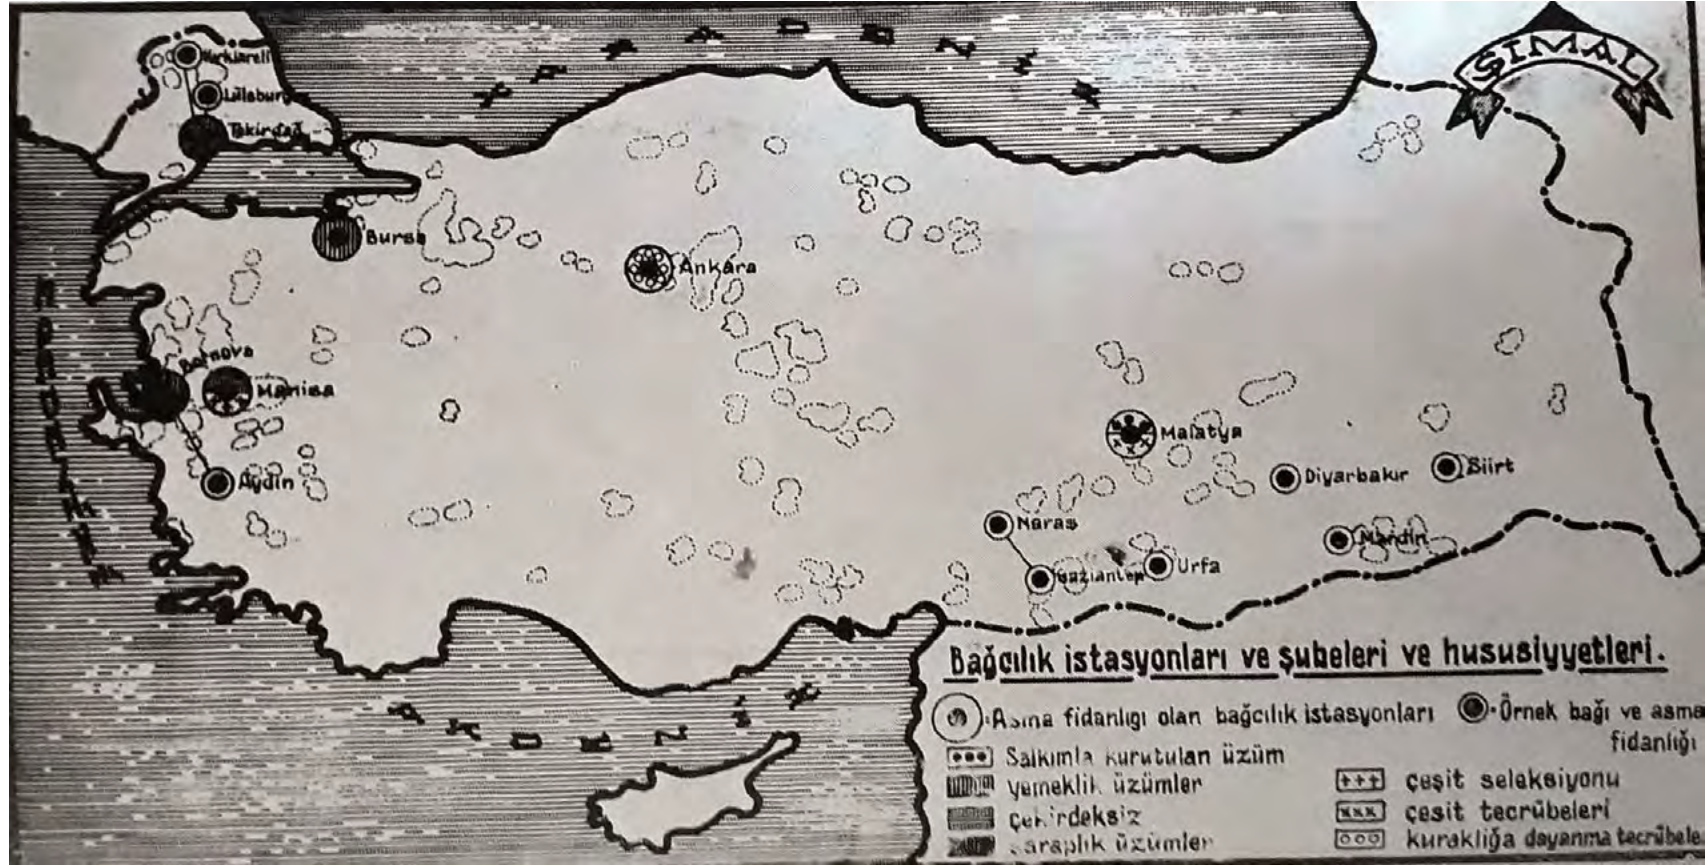 KARADENİZ
ŞIMAL
Kırklareli
Lüleburgaz
Tekirdağ
Bursa
Ankara
Bornova
Manisa
Malatya
Aydin
Diyarbakır
Siirt
Maraş
Mardin
Gaziantep
Urfa
AKDENİZ
Bağcılık istasyonları ve şubeleri ve hususiyyetleri.
:Asma fidanlığı olan bağcılık istasyonları
Örnek bağı ve asma
fidanlığı
Salkımla kurutulan üzüm
yemeklik üzümler
çekirdeksiz
şaraplık üzümler
+++ çeşit seleksiyonu
xxx çesit tecrübeleri
ooo kuraklığa dayanma tecrübele